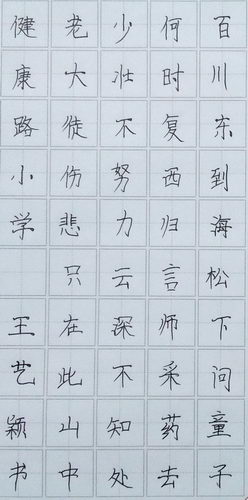 百川东到海松下问童子
何时复西归言师采药去
少壮不努力云深不知处
老大徒伤悲只在此山中
健康路小学 王艺颖书